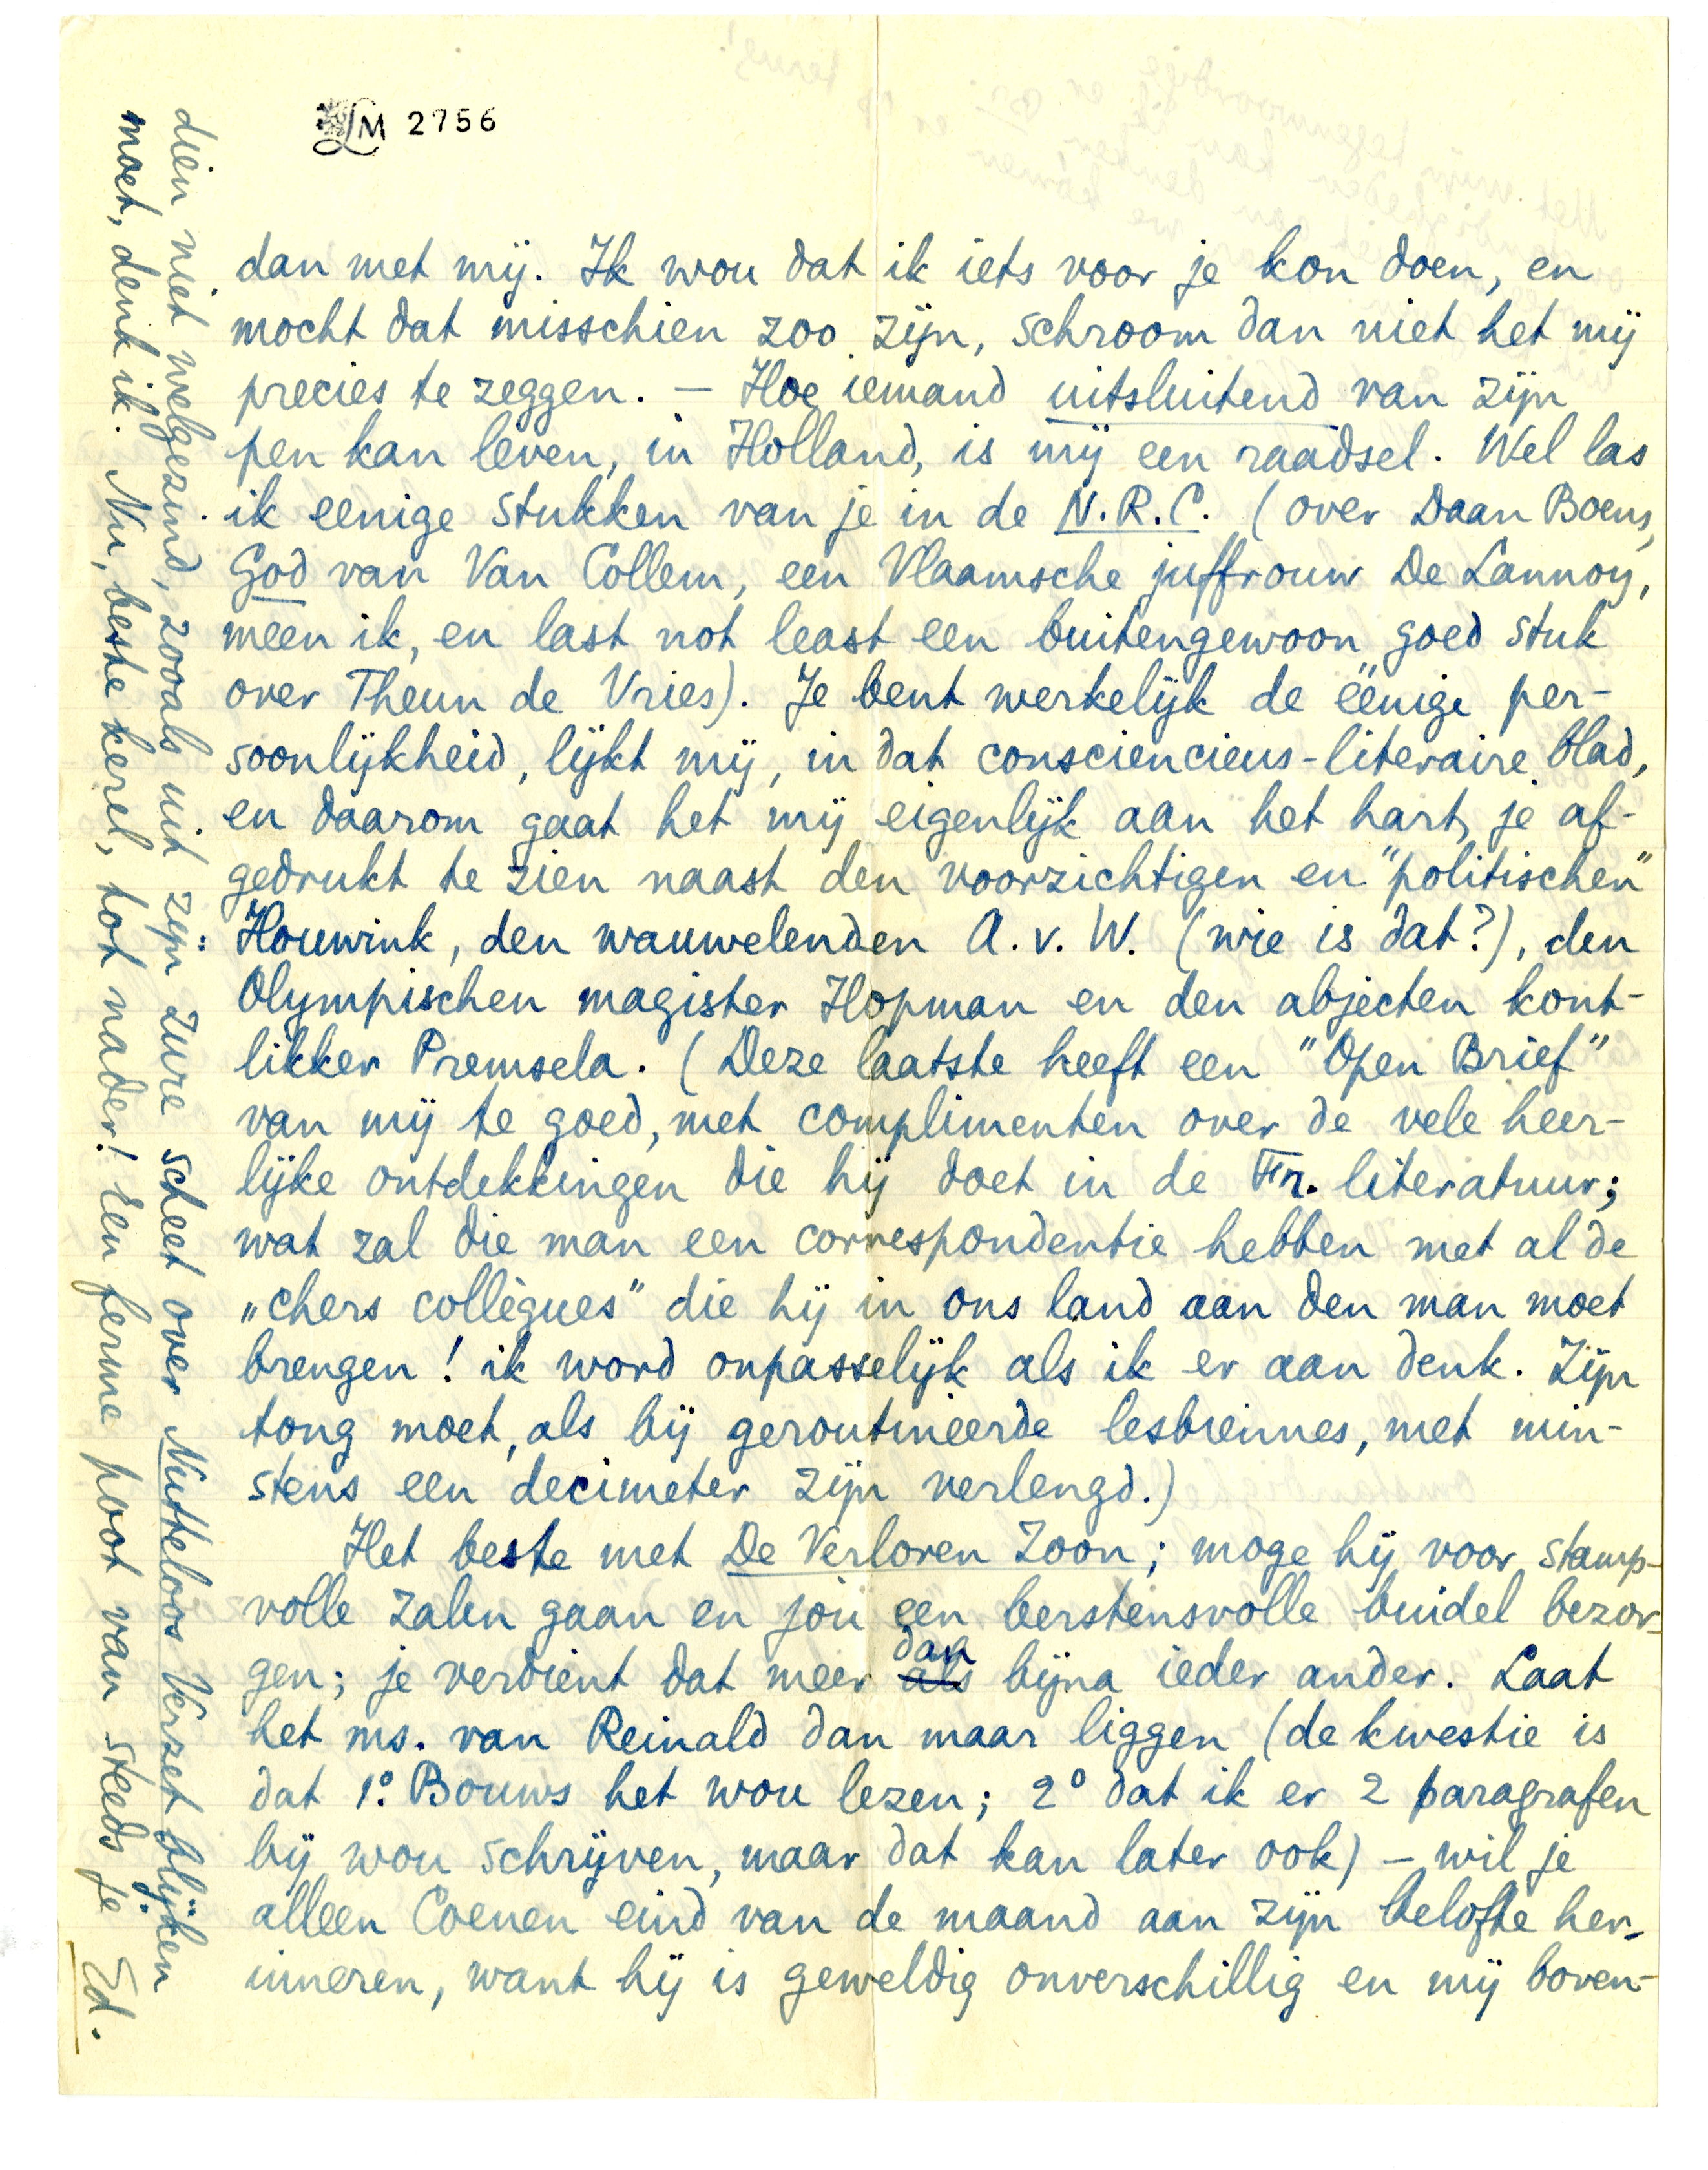 LM 2756
dan met mij. Ik wou dat ik iets voor je kon doen, en
mocht dat misschien zoo zijn, schroom dan niet het mij
precies te zeggen. – Hoe iemand uitsluitend van zijn
pen kan leven, in Holland, is mij een raadsel. Wel las
ik eenige stukken van je in de N.R.C. (over Daan Boens,
God van Van Collem, een Vlaamsche juffrouw De Lannoy,
meen ik, en last not least een buitengewoon goed stuk
over Theun de Vries). Je bent werkelijk de ëenige per-
soonlijkheid, lijkt mij, in dat consciencieus-literaire blad,
en daarom gaat het mij eigenlijk aan het hart, je af-
gedrukt te zien naast den voorzichtigen en "politischen"
Houwink, den wauwelenden A. v. W. (wie is dat?), den
Olympischen magister Hopman en den abjecten kont-
likker Premsela. (Deze laatste heeft een "Open Brief"
van mij te goed, met complimenten over de vele heer-
lijke ontdekkingen die hij doet in de Fr. literatuur;
wat zal die man een correspondentie hebben met al de
„chers collègues" die hij in ons land aan den man moet
brengen! ik word onpasselijk als ik er aan denk. Zijn
tong moet, als bij geroutineerde lesbiennes, met min-
stens een decimeter zijn verlengd.)
Het beste met De Verloren Zoon; moge hij voor stamp-
volle zalen gaan en jou een berstensvolle buidel bezor-
gen; je verdient dat meer als dan bijna ieder ander. Laat
het ms. van Reinald dan maar liggen (de kwestie is
dat 1º. Bouws het wou lezen; 2º dat ik er 2 paragrafen
bij wou schrijven, maar dat kan later ook) – wil je
alleen Coenen eind van de maand aan zijn belofte her-
inneren, want hij is geweldig onverschillig en mij boven-
dien niet welgezind, zooals uit zijn zure scheet over Nutteloos Verzet blijken
moet, denk ik. Nu, beste kerel, tot nader! Een ferme poot van steeds je Ed.